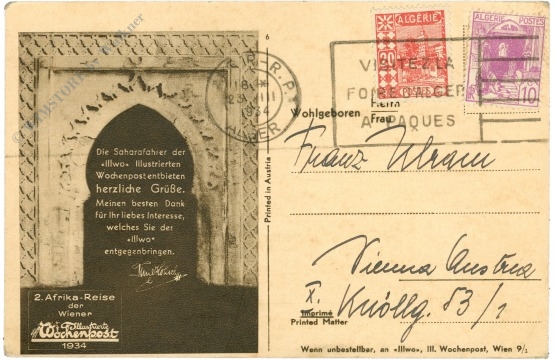 6
Die Saharafahrer der
»Illwo« Illustrierten
Wochenpost entbieten
herzliche Grüße.
Meinen besten Dank
für Ihr liebes Interesse,
welches Sie der
»Illwo«
entgegenbringen.
2. Afrika-Reise
der
Wiener
Illustrierte
Wochenpost
1934
Printed in Austria
ALGER
1934
VISITEZ LA
FOIRE D'ALGER
A PAQUES
ALGÉRIE
ALGERIE POSTES
10
Wohlgeboren
Herrn
Frau
Franz Ulram
Vienna Austria
X. Knöllg. 53/1
Imprimé
Printed Matter
Wenn unbestellbar, an »Illwo«, III. Wochenpost, Wien 9/1